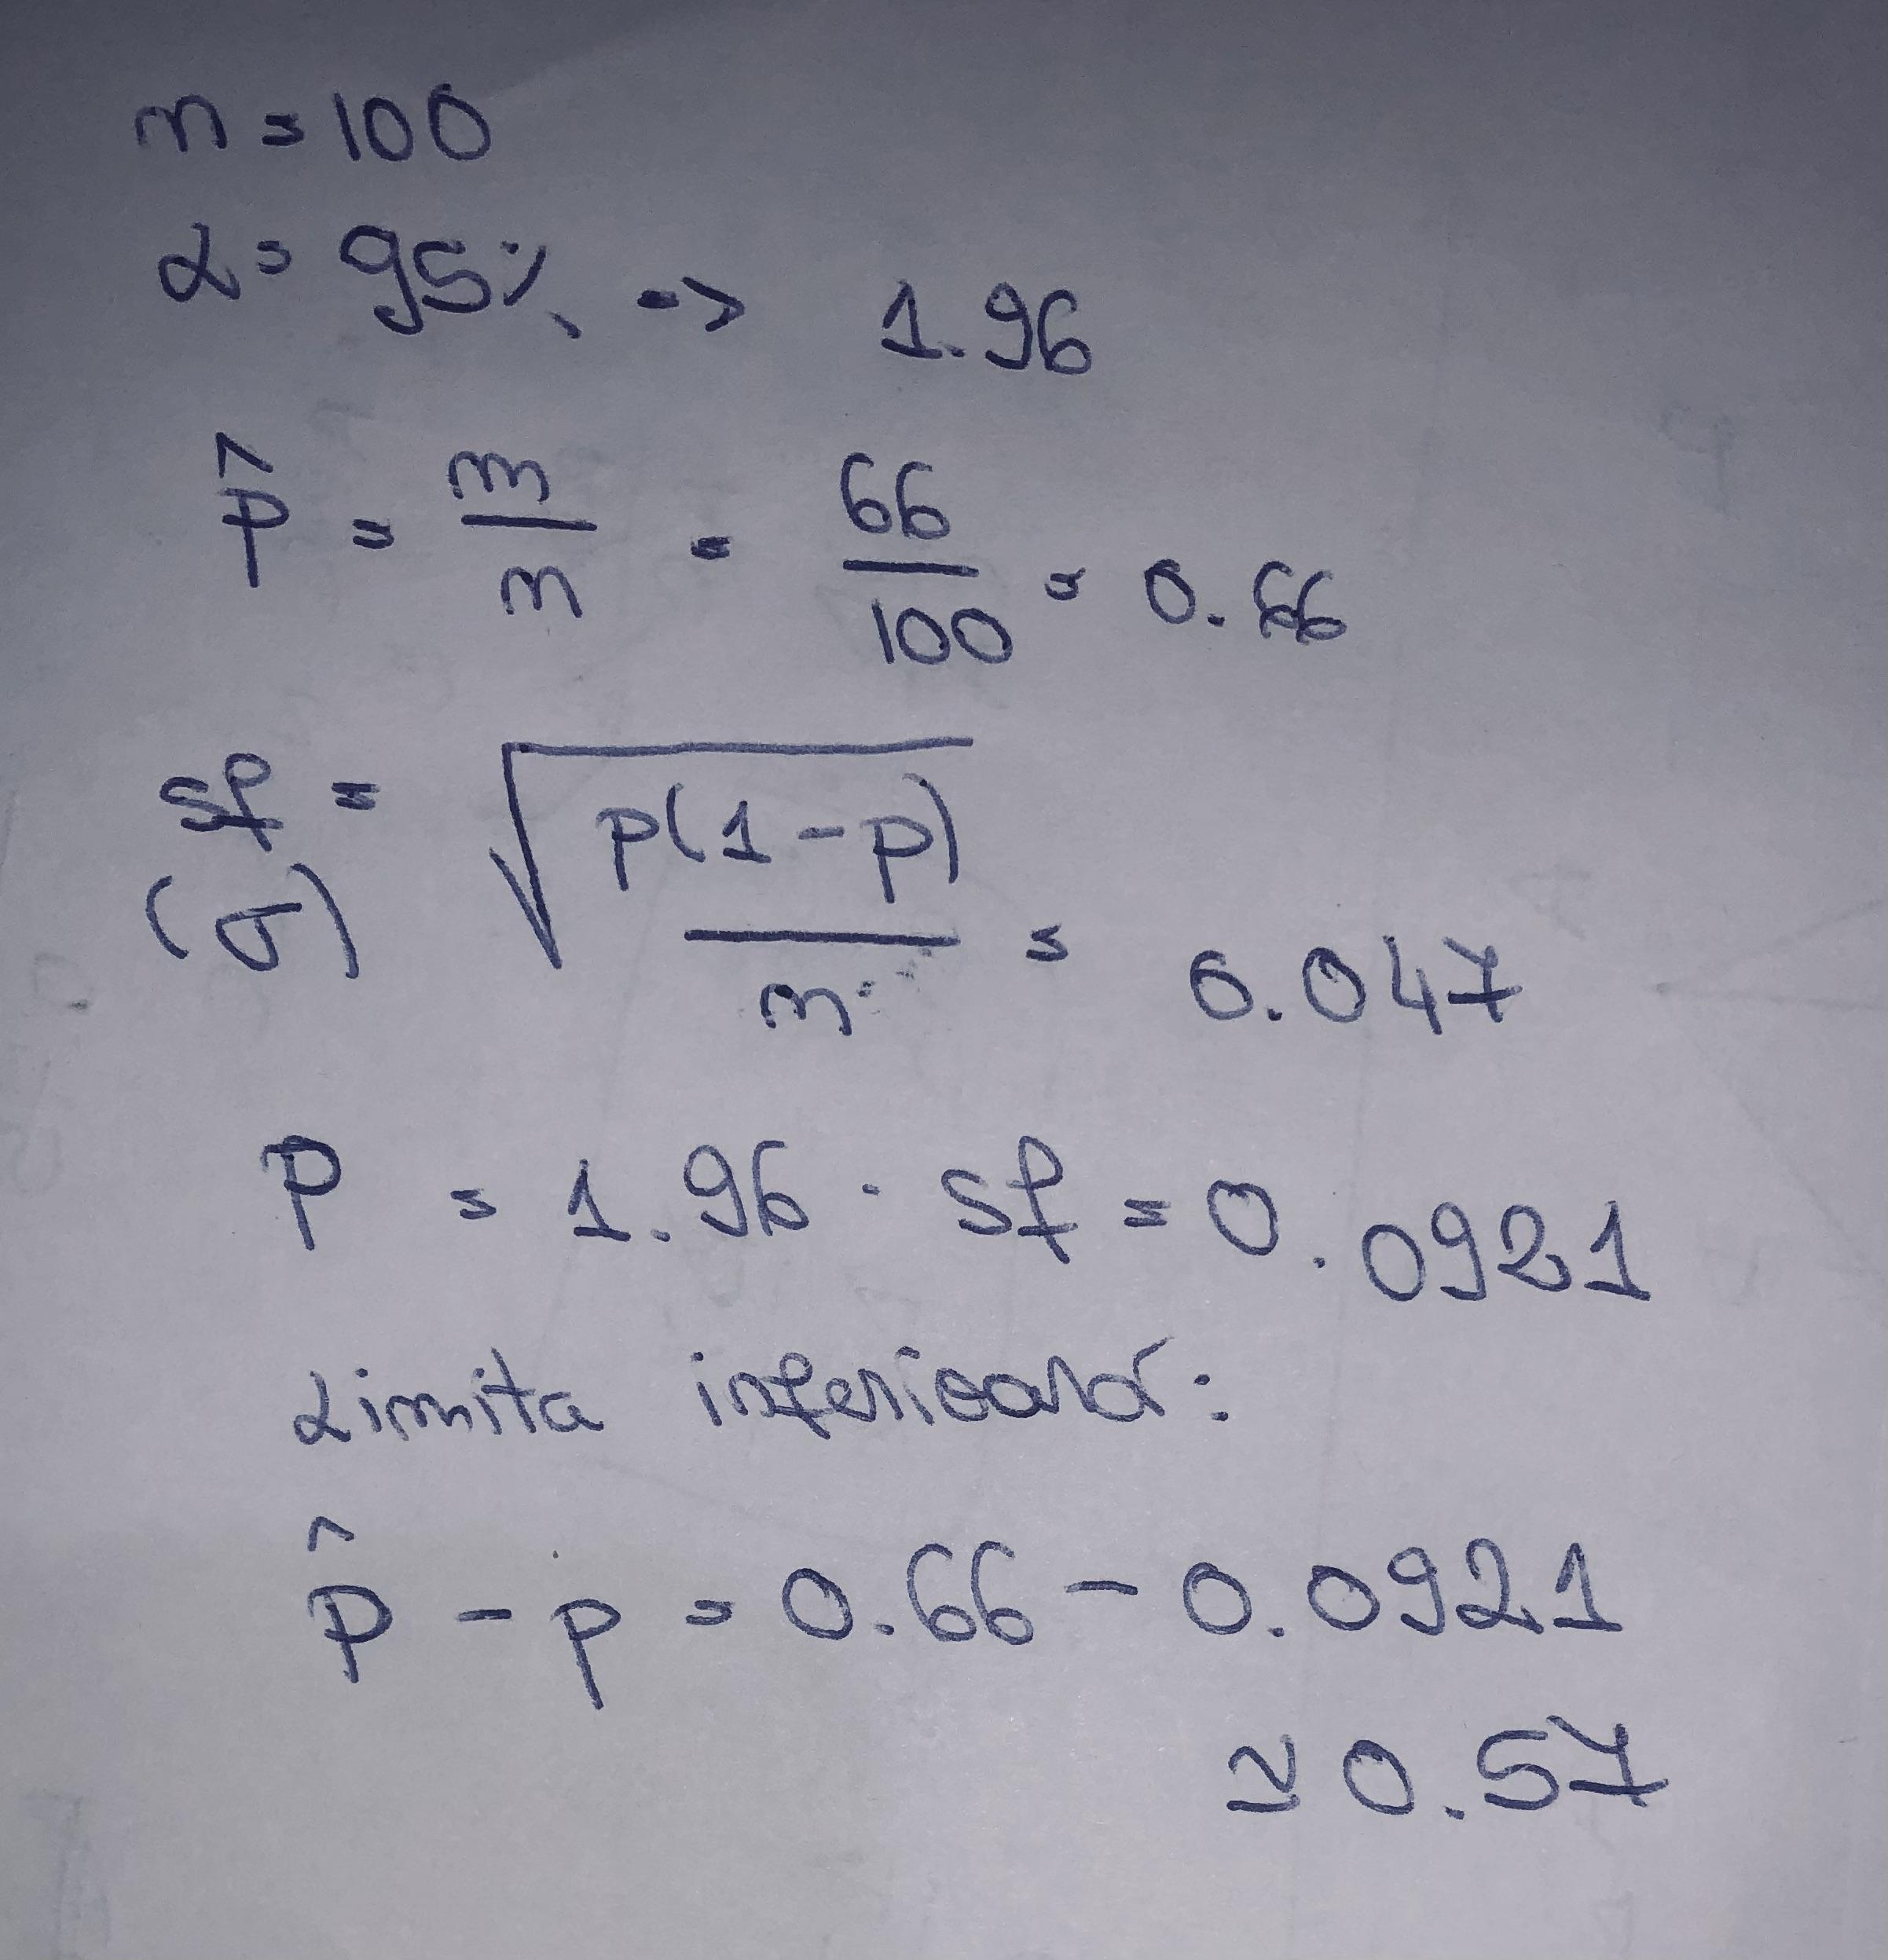 n = 100
α = 95% -> 1.96
p̂ = m/n = 66/100 = 0.66
sf = √(p(1-p)/n) = 0.047
(σ)
P = 1.96 · sf = 0.0921
Limita inferioară:
p̂ - p = 0.66 - 0.0921
≃ 0.57